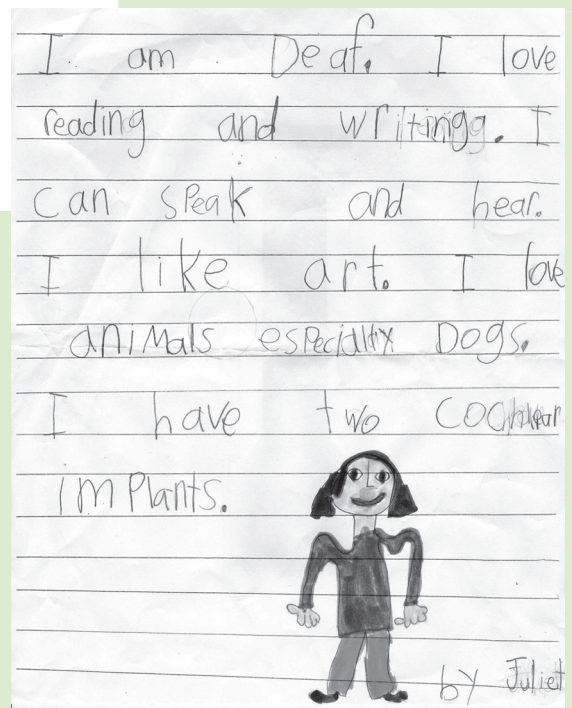 I am Deaf. I love
reading and writingg. I
can speak and hear.
I like art. I love
animals especiality Dogs.
I have two Cochlear
implants.
by Juliet